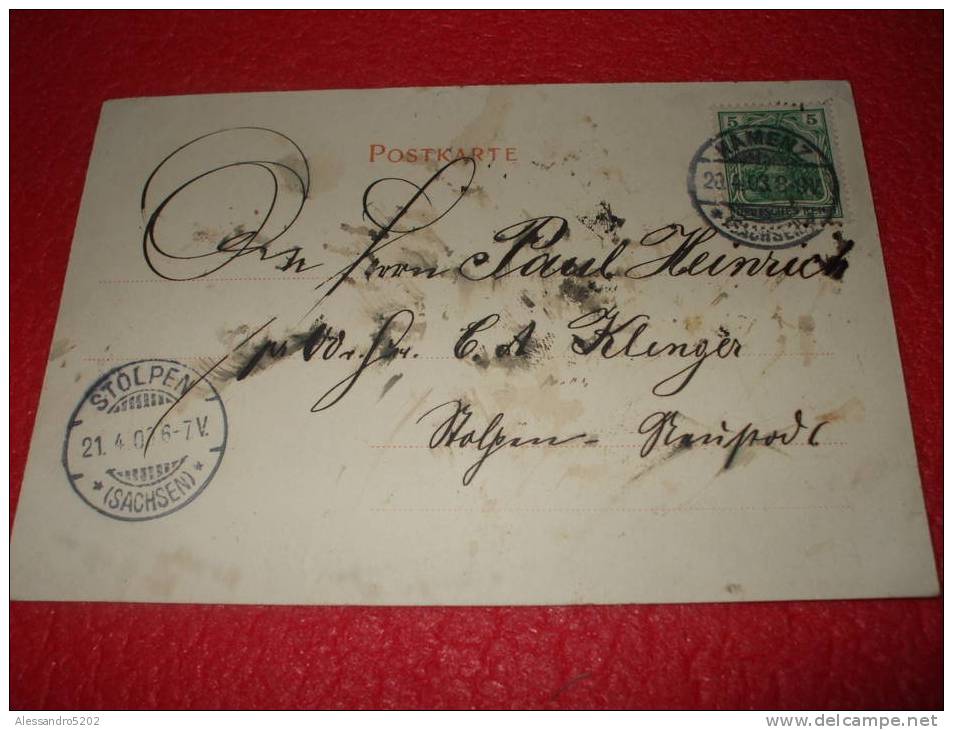 POSTKARTE
5 5
KAMENZ
20.4.03.8-9V.
DEUTSCHES REICH
*(SACHSEN)*
An Herrn Paul Heinrich
pr Adr. Hr. C. A Klinger
Stolpen - Neustadt
STOLPEN
21.4.03 6-7V.
*(SACHSEN)*
Alessandro5202
www.delcampe.net